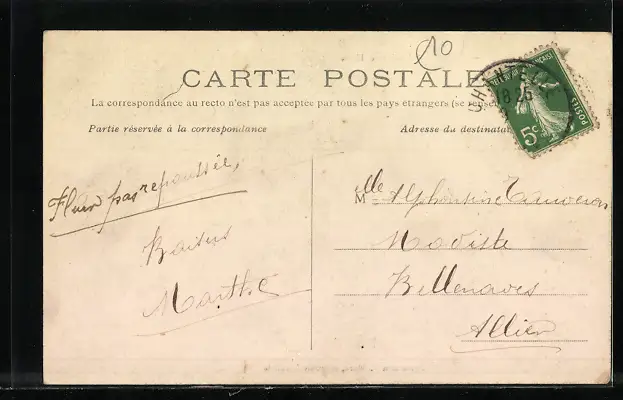 10
CARTE POSTALE
La correspondance au recto n'est pas acceptée par tous les pays étrangers (se
Partie réservée à la correspondance
Adresse du destinata
5c
POSTES
8
Mlle Alphonsine
Modiste
Bellenaves
Allier
pas repoussée,
Baisers
Marthe